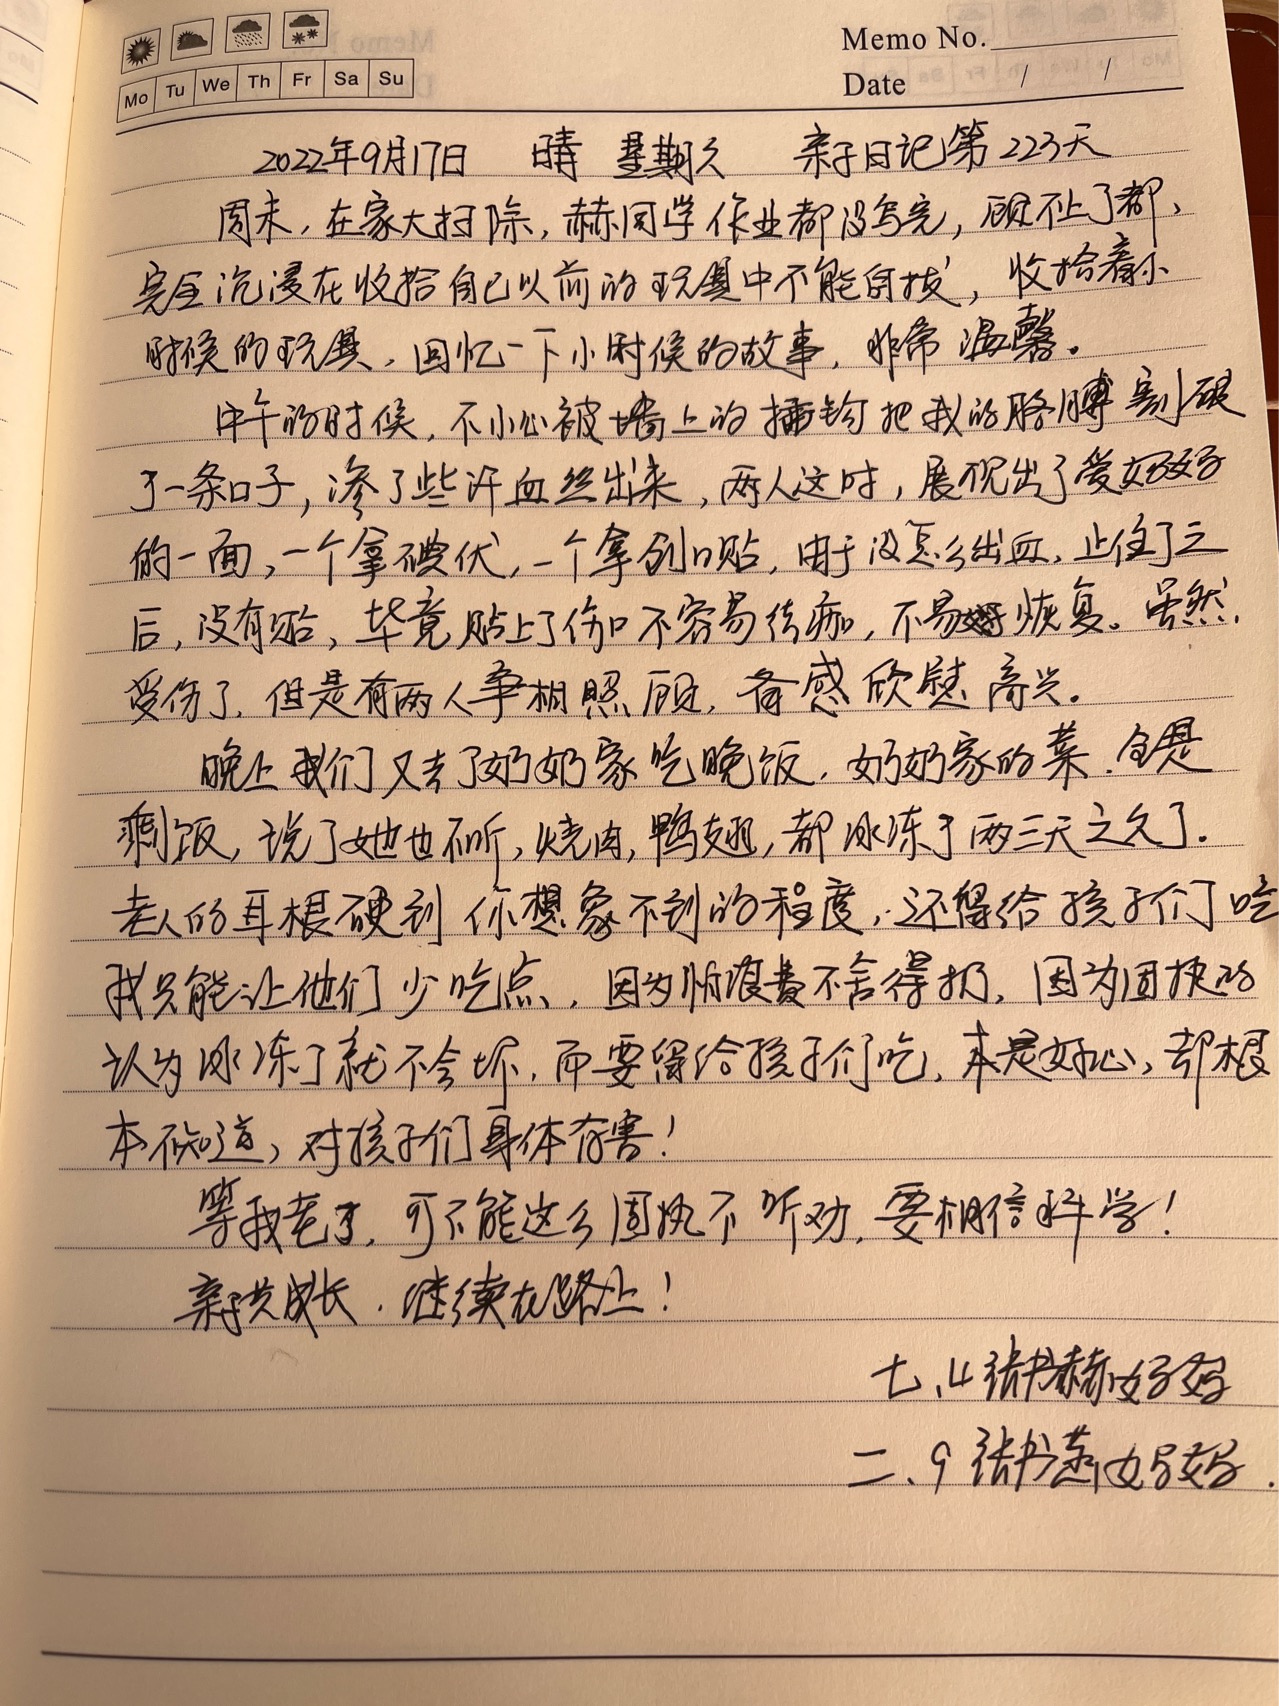 Memo No.
Mo Tu We Th Fr Sa Su
Date / /
2022年9月17日 晴 星期六 亲子日记第223天
周末，在家大扫除，赫同学作业都没写完，顾不上了都，
完全沉浸在收拾自己以前的玩具中不能自拔，收拾着小
时候的玩具，回忆一下小时候的故事，非常温馨。
中午的时候，不小心被墙上的挂钩把我的胳膊割破
了一条口子，渗了些许血丝出来，两人这时，展现出了爱妈妈
的一面，一个拿碘伏，一个拿创口贴，由于没怎么出血，止住了之
后，没有贴，毕竟贴上了伤口不容易结痂，不易恢复。虽然，
受伤了，但是有两人争相照顾，备感欣慰高兴。
晚上我们又去了奶奶家吃晚饭，奶奶家的菜，全是
剩饭，说了她也不听，烧肉，鸭翅，都冰冻了两三天之久了。
老人的耳根硬到你想象不到的程度，还得给孩子们吃
我只能让他们少吃点，因为怕浪费不舍得扔，因为固执的
认为冰冻了就不会坏，而要留给孩子们吃，本是好心，却根
本不知道，对孩子们身体有害！
等我老了，可不能这么固执不听劝，要相信科学！
亲子共成长，继续在路上！
七、4 张书赫妈妈
二、9 张书燕妈妈.